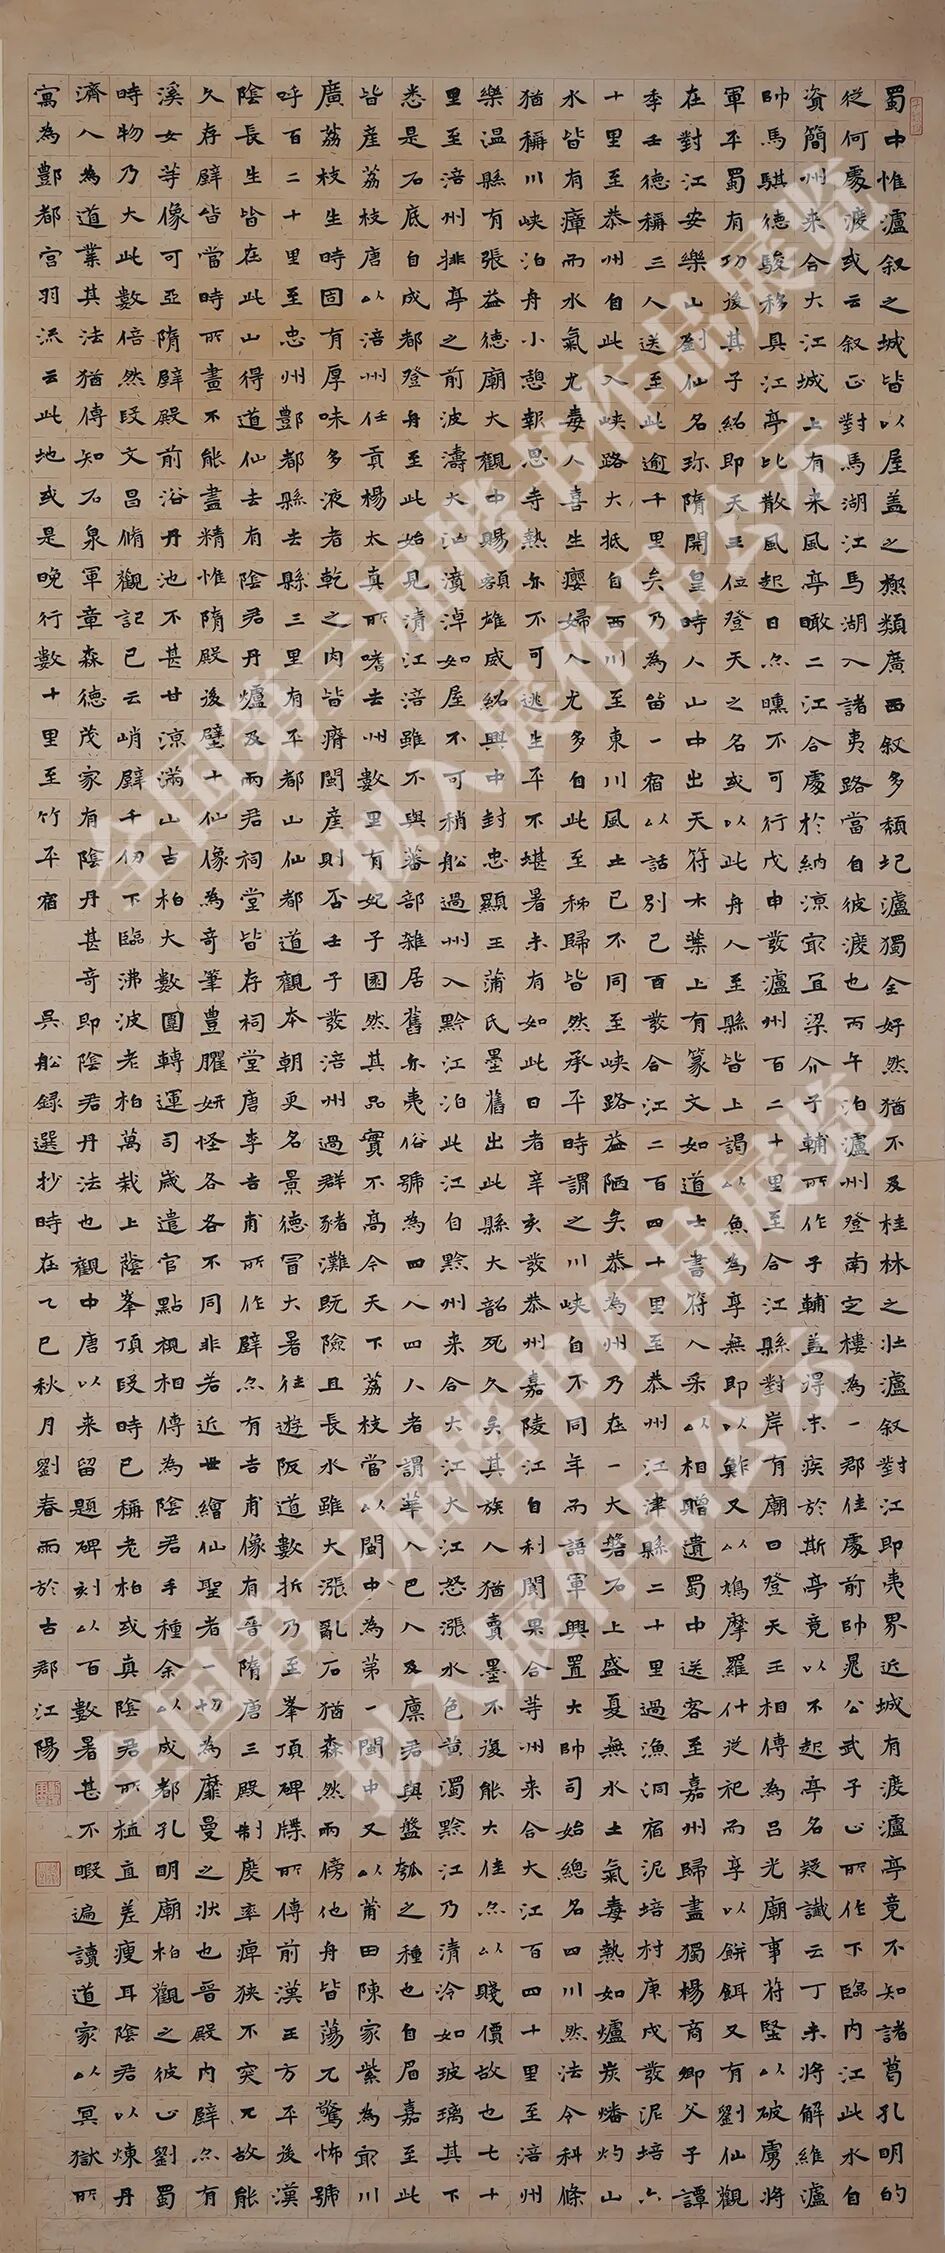 蜀中惟瀘叙之城皆以屋蓋之極類廣西叙多頹圮瀘獨全好然猶不及桂林之壯瀘叙對江即夷界近城有渡瀘亭竟不知諸葛孔明的
從何處渡或云叙正對馬湖江馬湖入諸夷路當自彼渡也丙午泊瀘州登南定樓為一郡佳處前帥晁公武子止所作下臨内江此水自
資簡州来合大江城上有来風亭瞰二江合處於納涼最宜梁介子輔所作子輔蓋得末疾於斯亭竟以不起亭名疑讖云丁未将解維瀘
帥馬騏德駿移具江亭比散風起日亦曛不可行戊申發瀘州百二十里至合江縣對岸有廟曰登天王相傳為呂光廟事苻堅以破虜將
軍平蜀有功後其子紹即天王位登天之名或以此舟人至縣皆上謁以魚為享無即以鮓又以鳩摩羅什從祀而享以餅餌又有劉仙觀
在對江安樂山劉仙名珎隋開皇時人山中出天符木葉上有篆文如道士書符人采以相贈遺蜀中送客至嘉州歸盡獨楊商卿父子譚
季壬德稱三人送至此逾千里矣乃為留一宿以話別己酉發合江二百四十里至恭州江津縣二十里過漁洞宿泥培村庚戌發泥培六
十里至恭州自此入峽路大抵自西川至東川風土已不同至峽路益陋矣恭為州乃在一大磐石上盛夏無水土氣毒熱如爐炭燔灼山
水皆有瘴而水氣尤毒人喜生癭婦人尤多自此至秭歸皆然承平時謂之川峽自不同年而語軍興置大帥司始總名四川然法令科條
猶稱川峽泊舟小憩報恩寺熱亦不可逃生平不堪暑未有如此日者辛亥發恭州嘉陵江自利閬果合等州来合大江百四十里至涪州
樂溫縣有張益德廟大觀中賜額雄威紹興中封忠顯王蒲氏墨舊出此縣大韶死久矣其族人猶賣墨不復能大佳亦以賤價故也七十
里至涪州排亭之前波濤大洶濆淖如屋不可稍船過州入黔江泊此江自黔州来合大江大江怒漲水色黄濁黔江乃清泠如玻璃其下
悉是石底自成都登舟至此始見清江涪雖不與蕃部雜居舊亦夷俗號為四人四人者謂華人巴人及廪君與盤瓠之種也自眉嘉至此
皆産荔枝唐以涪州任貢楊太真所嗜去州數里有妃子園然其品實不高今天下荔枝當以閩中為第一閩中又以莆田陳家紫為最川
廣荔枝生時固有厚味多液者乾之肉皆瘠閩産則否壬子發涪州過群豬灘既險且長水雖大漲亂石猶森然兩傍他舟皆蕩兀驚怖號
呼百二十里至忠州酆都縣去縣三里有平都山仙都道觀本朝更名景德冒大暑往遊阪道數折乃至峯頂碑牒所傳前漢王方平後漢
陰長生皆在此山得道仙去有陰君丹爐及兩君祠堂皆存祠堂唐李吉甫所作壁亦有吉甫像有晋隋唐三殿制度率痺狭不突兀故能
久存壁皆當時所畫不能盡精惟隋殿後壁十仙像為奇筆豐臞妍怪各各不同非若近世繪仙聖者一切為靡曼之状也晋殿内壁亦有
溪女等像可亞隋壁殿前浴丹池不甚甘涼滿山古柏大數圍轉運司歲遣官點視相傳為陰君手種余以成都孔明廟柏觀之彼止劉蜀
時物乃大此數倍然段文昌脩觀記已云峭壁千仞下臨沸波老柏萬栽上蔭峯頂段時已稱老柏或真陰君所植直差瘦耳陰君以煉丹
濟人為道業其法猶傳知石泉軍章森德茂家有陰丹甚奇即陰君丹法也觀中唐以来留題碑刻以百數暑甚不暇遍讀道家以冥獄所
寓為酆都宫羽流云此地或是晚行數十里至竹平宿 吳船録選抄時在乙巳秋月劉春雨於古郡江陽
全国第三届楷书作品展览
拟入展作品公示
全国第三届楷书作品展览
拟入展作品公示